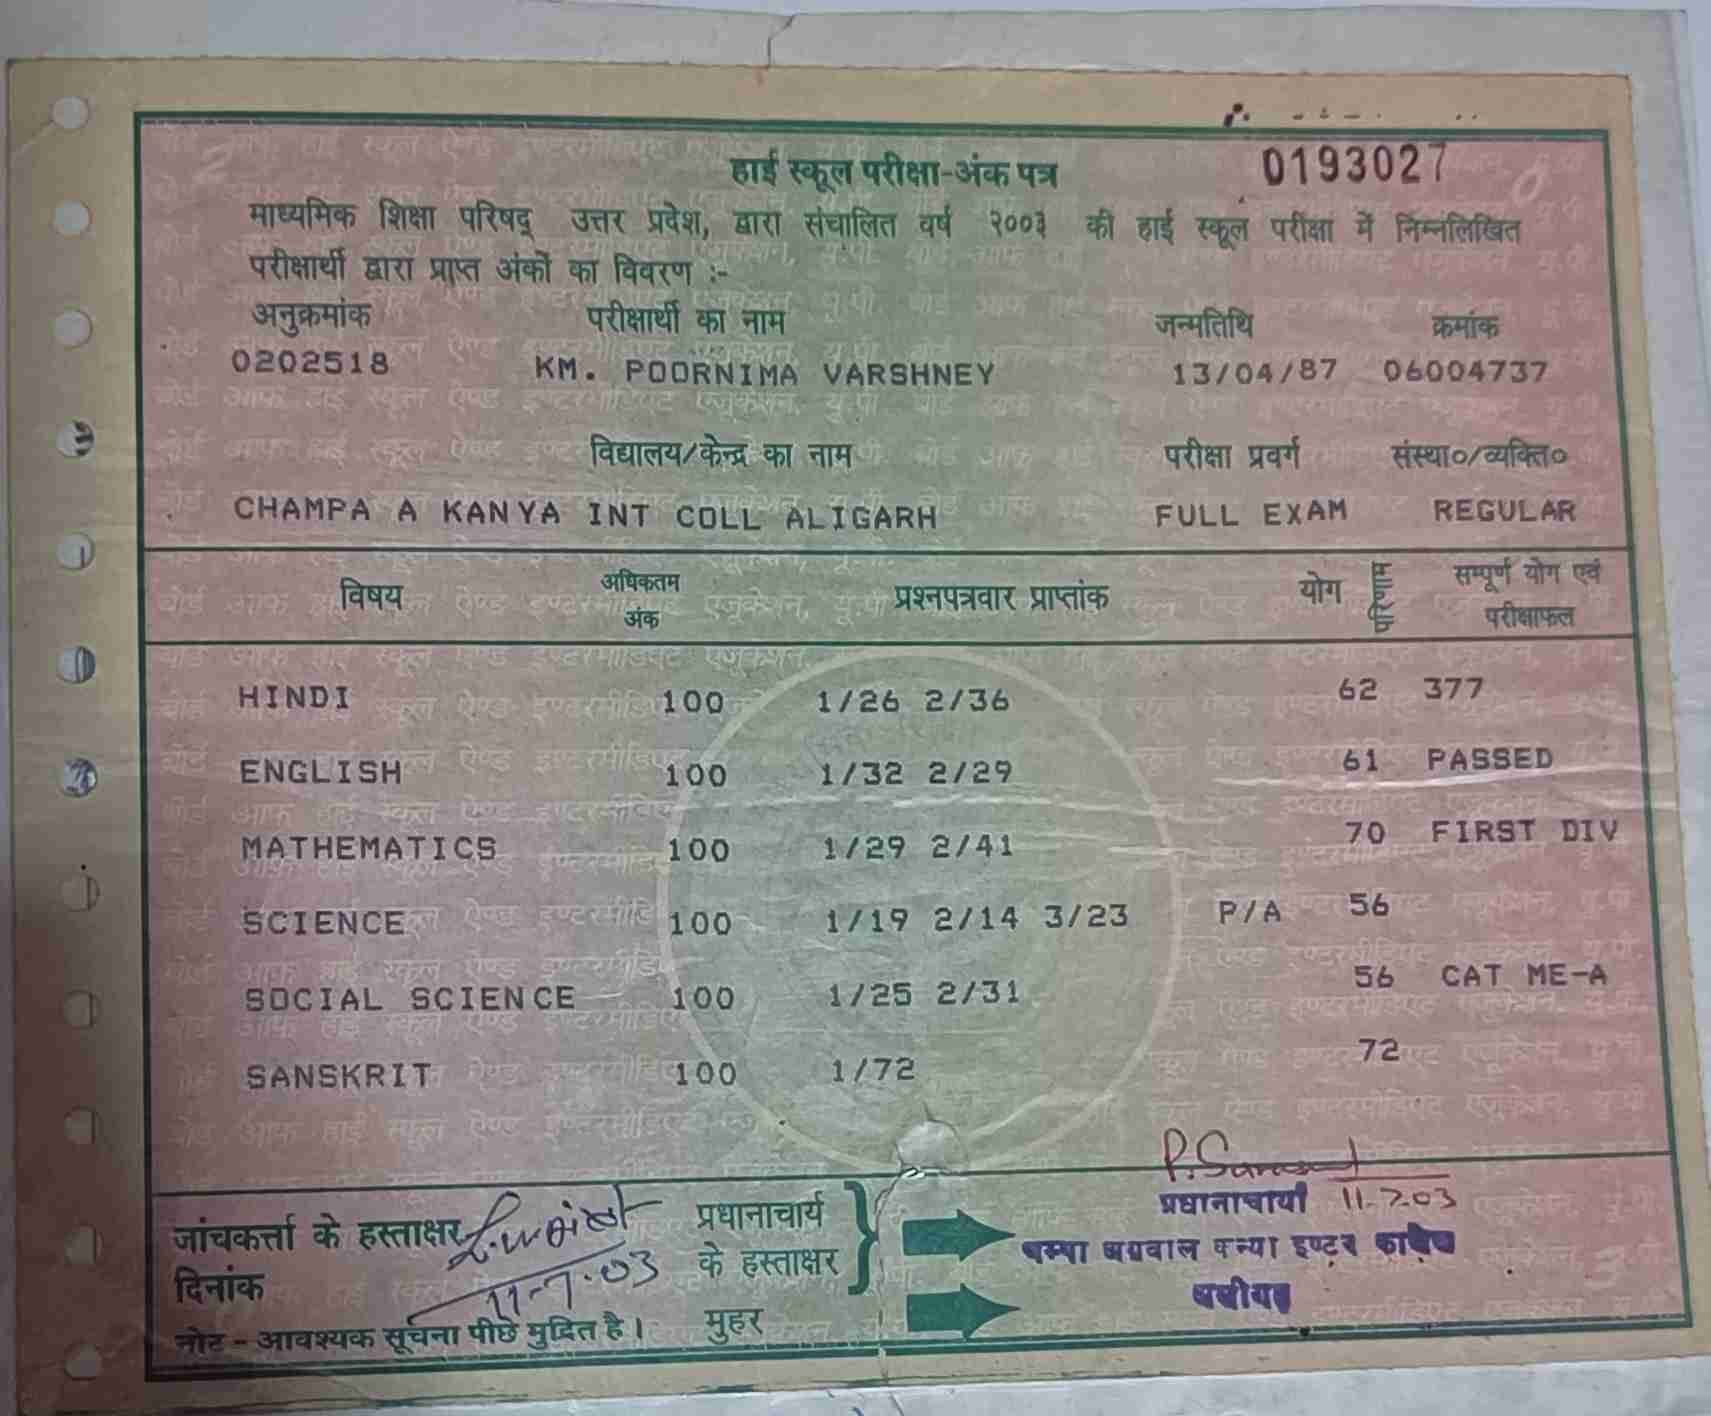 0193027
हाई स्कूल परीक्षा-अंक पत्र
माध्यमिक शिक्षा परिषद् उत्तर प्रदेश, द्वारा संचालित वर्ष २००३ की हाई स्कूल परीक्षा में निम्नलिखित
परीक्षार्थी द्वारा प्राप्त अंकों का विवरण :-
अनुक्रमांक परीक्षार्थी का नाम जन्मतिथि क्रमांक
0202518 KM. POORNIMA VARSHNEY 13/04/87 06004737
विद्यालय/केन्द्र का नाम परीक्षा प्रवर्ग संस्था०/व्यक्ति०
CHAMPA A KANYA INT COLL ALIGARH FULL EXAM REGULAR
विषय अधिकतम अंक प्रश्नपत्रवार प्राप्तांक योग परिणाम सम्पूर्ण योग एवं परीक्षाफल
HINDI 100 1/26 2/36 62 377
ENGLISH 100 1/32 2/29 61 PASSED
MATHEMATICS 100 1/29 2/41 70 FIRST DIV
SCIENCE 100 1/19 2/14 3/23 P/A 56
SOCIAL SCIENCE 100 1/25 2/31 56 CAT ME-A
SANSKRIT 100 1/72 72
जांचकर्त्ता के हस्ताक्षर
दिनांक 11-7-03
प्रधानाचार्य
के हस्ताक्षर
मुहर
प्रधानाचार्या 11.7.03
चम्पा अग्रवाल कन्या इण्टर कालेज
अलीगढ़
नोट - आवश्यक सूचना पीछे मुद्रित है।